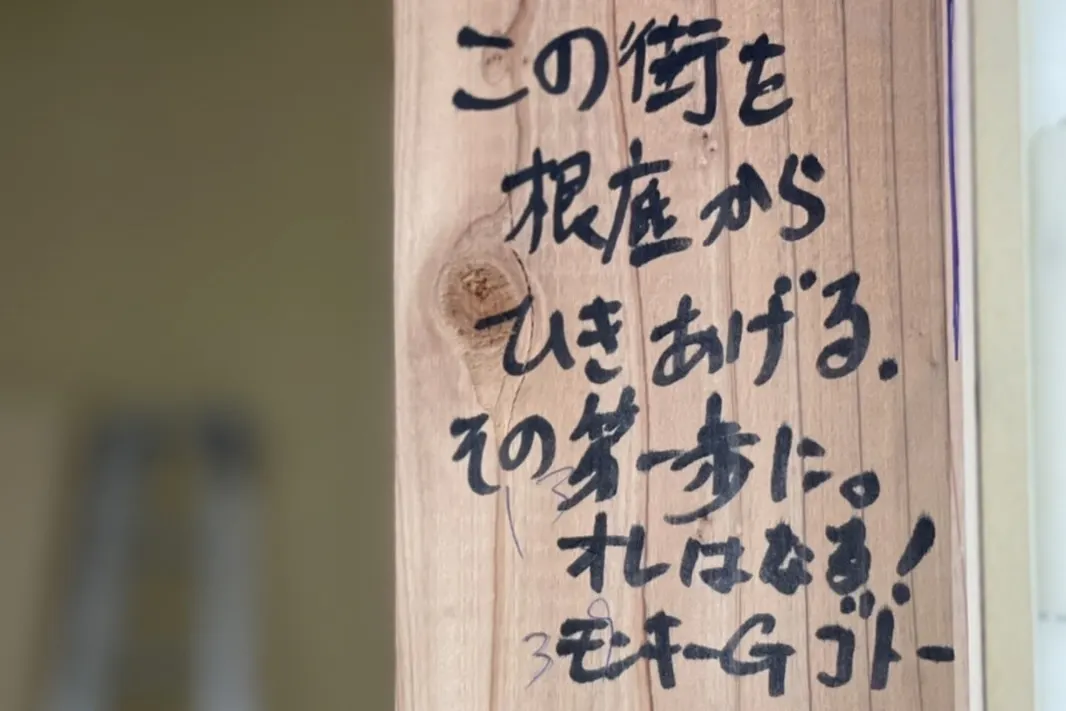 この街を
根底から
ひきあげる.
その第一歩に。
オレはなる!
モンキーGゴトー